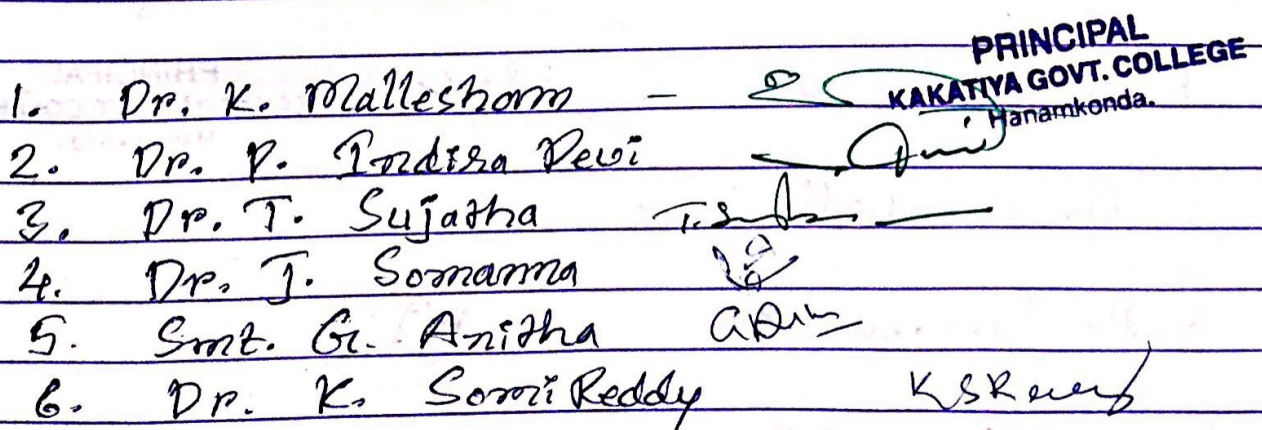 PRINCIPAL
KAKATIYA GOVT. COLLEGE
Hanamkonda.
1. Dr. K. Mallesham -
2. Dr. P. Indira Devi
3. Dr. T. Sujatha
4. Dr. J. Somanna
5. Smt. G. Anitha
6. Dr. K. Somi Reddy